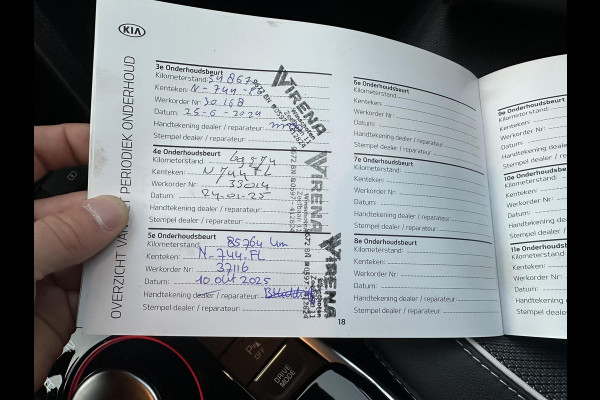 KIA
OVERZICHT VAN HET PERIODIEK ONDERHOUD
3e Onderhoudsbeurt
Kilometerstand:
Kenteken: N-744-FL
Werkorder Nr: 30168
Datum: 25-6-2024
Handtekening dealer / reparateur:
Stempel dealer / reparateur:
VIRENA
4e Onderhoudsbeurt
Kilometerstand:
Kenteken: N744FL
Werkorder Nr: 33014
Datum: 24-01-25
Handtekening dealer / reparateur:
Stempel dealer / reparateur:
VIRENA
5e Onderhoudsbeurt
Kilometerstand: 85764 km
Kenteken: N-744-FL
Werkorder Nr: 37116
Datum: 10 okt 2025
Handtekening dealer / reparateur:
Stempel dealer / reparateur:
VIRENA
18
6e Onderhoudsbeurt
Kilometerstand:
Kenteken:
Werkorder Nr:
Datum:
Handtekening dealer / reparateur:
Stempel dealer / reparateur:
7e Onderhoudsbeurt
Kilometerstand:
Kenteken:
Werkorder Nr:
Datum:
Handtekening dealer / reparateur:
Stempel dealer / reparateur:
8e Onderhoudsbeurt
Kilometerstand:
Kenteken:
Werkorder Nr:
Datum:
Handtekening dealer / reparateur:
Stempel dealer / reparateur:
9e Onderhoudsbeurt
Kilometerstand:
Kenteken:
Werkorder Nr:
Datum:
Handtekening
Stempel dealer
10e Onderhoudsbeurt
Kilometerstand:
Kenteken:
Werkorder Nr:
Datum:
Handtekening dealer
Stempel dealer / rep
11e Onderhoudsbeurt
Kilometerstand:
Kenteken:
Werkorder Nr:
Datum:
Handtekening dealer
Stempel dealer / repar
P
OFF
DRIVE
MODE